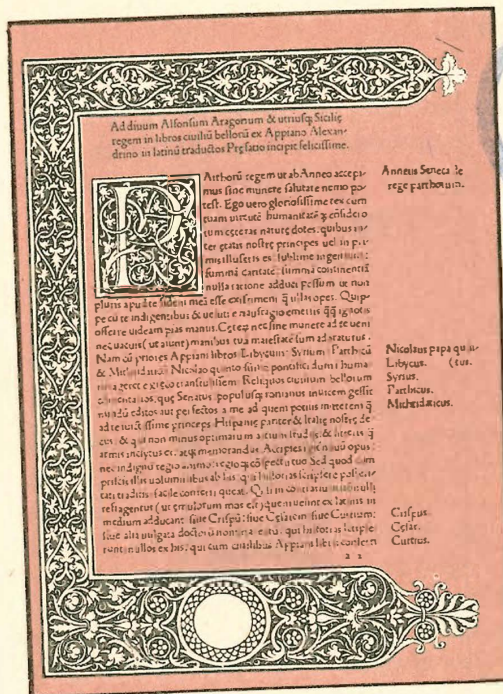 Ad diuum Alfonsum Aragonum & utriusq; Sicilię
regem in libros ciuiliū bellorū ex Appiano Alexan-
drino in latinū traductos Pręfatio incipit felicissime.
PArthorū regem ut ab Anneo accepi-
mus sine munere salutare nemo po-
test. Ego uero gloriosissime rex cum
tuam uirtutē humanitatē
tum cęteras naturę dotes: quibus in-
ter ętatis nostrę principes uel in pri-
mis illustris es: sublime ingeniū:
summā summā continentiā
nulla ratione adduci possum ut non
pluris apud te fidem meā esse existimem q̄ ullas opes. Quip-
pe cū te indigentibus & uelut e naufragio emersis ignotis
offerre uideam pias manus. Cęterū nec sine munere ad te ueni
nec uacuis (ut aiunt) manibus tuā maiestatē sum adoraturus.
Nam cū priores Appiani libros Libycum: Syrium: Parthicū
& Mithridaticū: Nicolao quinto summo pontifici dum
ageret e transtulissem. Reliquos ciuilium bellorum
quos Senatus populusq; romanus inuicem gessit
editos aut perfectos a me ad quem potius mitterem q̄
ad te princeps Hispanię pariter & Italię nostrę de-
cus: & qui non minus & litteris q̄
armis inclytus es:
nec indignū regio animo Sed quod
priscis illis uoluminibus ab his: qui historias scripsere
facile conferri queat.
mos est) quem uelint ex latinis in
medium adducant: siue Crispū: siue Cęsarem siue Curtium:
siue alia uulgata doctorū nomina qui historias scripse-
runt: nullos ex his: qui cum ciuilibus Appiani libris conferri
a 2
Anneus Seneca de
rege parthorum.
Nicolaus papa quin
Libycus. (tus.
Syrius.
Parthicus.
Mithridaticus.
Crispus.
Cęsar.
Curtius.